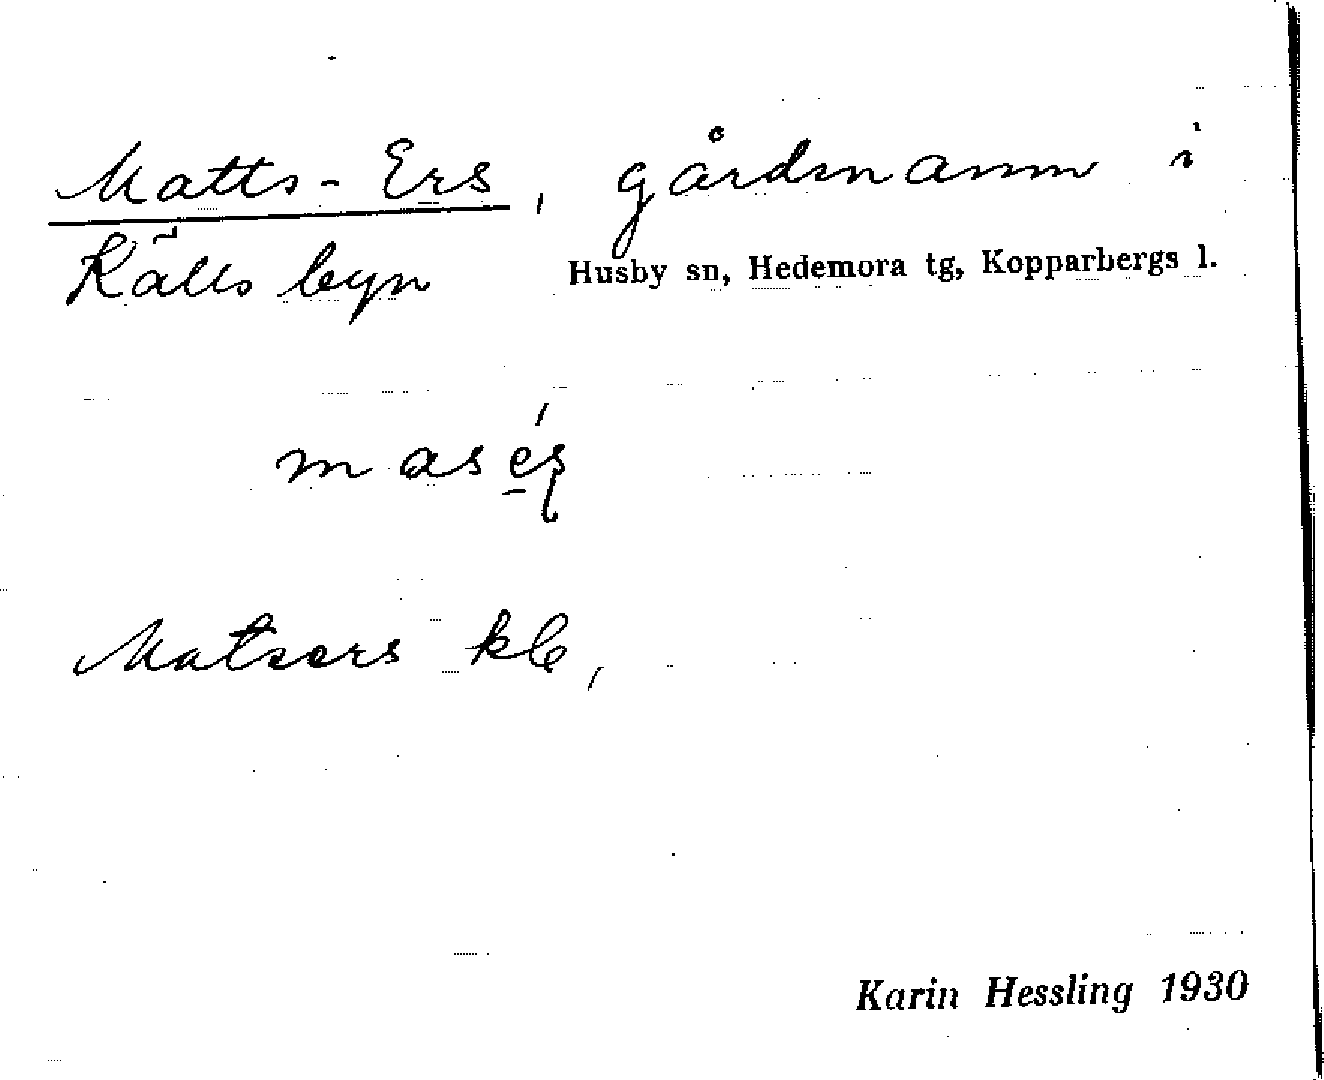 Matts-Ers, gårdsnamn i
Källsbyn Husby sn, Hedemora tg, Kopparbergs l.
Matsers kb,
Karin Hessling 1930